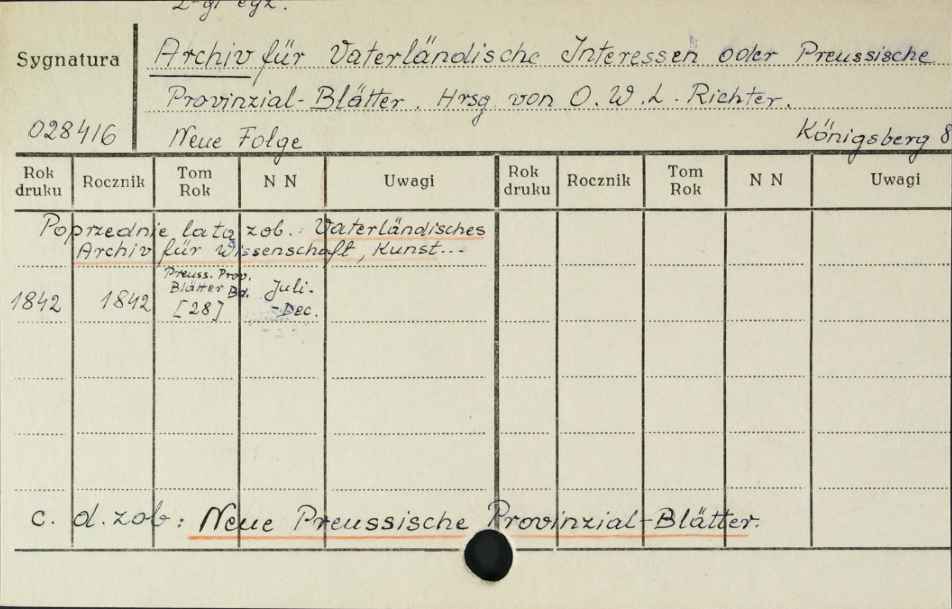 2-gi egz.
Sygnatura
Archiv für Vaterländische Interessen oder Preussische
Provinzial-Blätter. Hrsg von O. W. L. Richter.
028416
Neue Folge
Königsberg 8
Rok druku Rocznik Tom Rok N N Uwagi Rok druku Rocznik Tom Rok N N Uwagi
Poprzednie lata zob.: Vaterländisches
Archiv für Wissenschaft, Kunst...
1842 1842 Preuss. Prov. Blätter Bd. [28] Juli.-Dec.
c. d. zob: Neue Preussische Provinzial-Blätter.